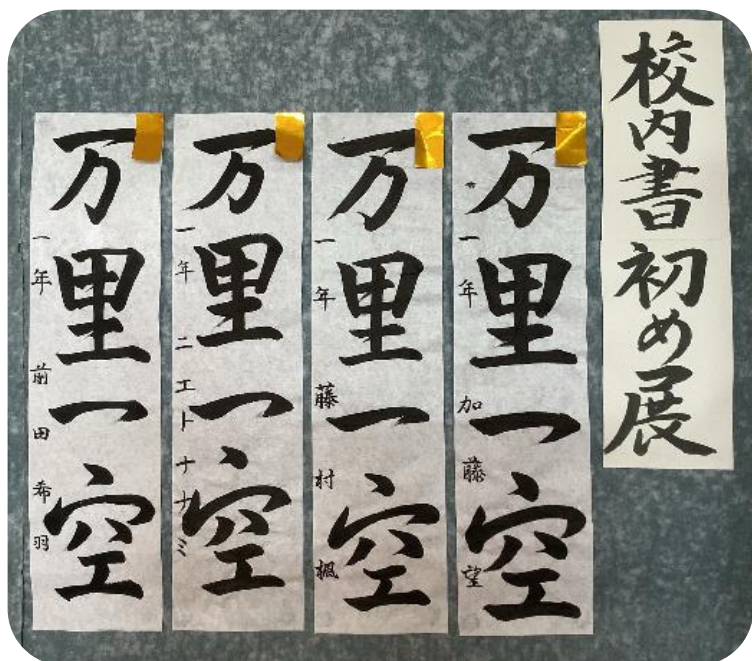 校内書初め展
万里一空
一年 加藤 望
万里一空
一年 藤村 楓
万里一空
一年 ニエト ナナミ
万里一空
一年 前田 希羽